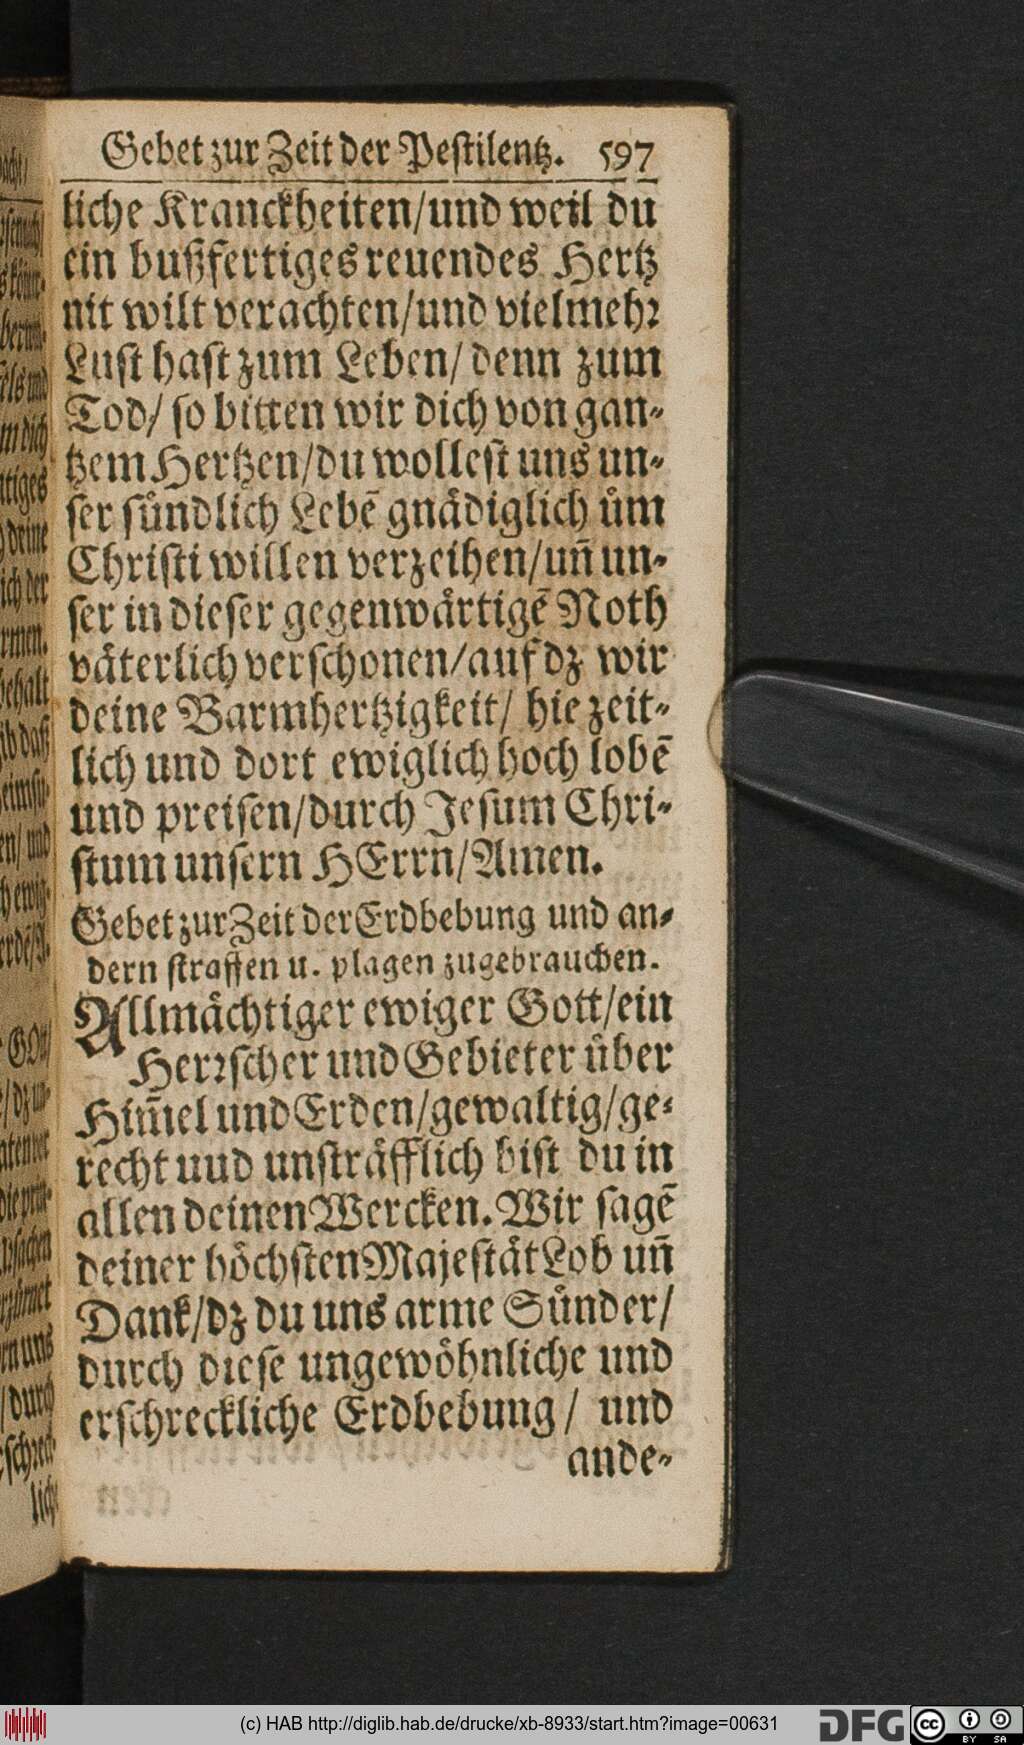 Gebet zur Zeit der Pestilentz. 597
liche Kranckheiten/und weil du
ein bußfertiges reuendes Hertz
nit wilt verachten/und vielmehr
Lust hast zum Leben/ denn zum
Tod/ so bitten wir dich von gan-
tzem Hertzen/du wollest uns un-
ser sündlich Lebē gnädiglich üm
Christi willen verzeihen/uñ un-
ser in dieser gegenwärtigē Noth
väterlich verschonen/auf dz wir
deine Barmhertzigkeit/ hie zeit-
lich und dort ewiglich hoch lobē
und preisen/durch Jesum Chri-
stum unsern HErrn/Amen.
Gebet zur Zeit der Erdbebung und an-
dern straffen u. plagen zugebrauchen.
Allmächtiger ewiger Gott/ein
Herrscher und Gebieter über
Him̃el und Erden/gewaltig/ge-
recht uud unsträfflich bist du in
allen deinen Wercken. Wir sagē
deiner höchsten Majestät Lob uñ
Dank/dz du uns arme Sünder/
durch diese ungewöhnliche und
erschreckliche Erdbebung/ und
ande-
(c) HAB http://diglib.hab.de/drucke/xb-8933/start.htm?image=00631
DFG cc BY SA